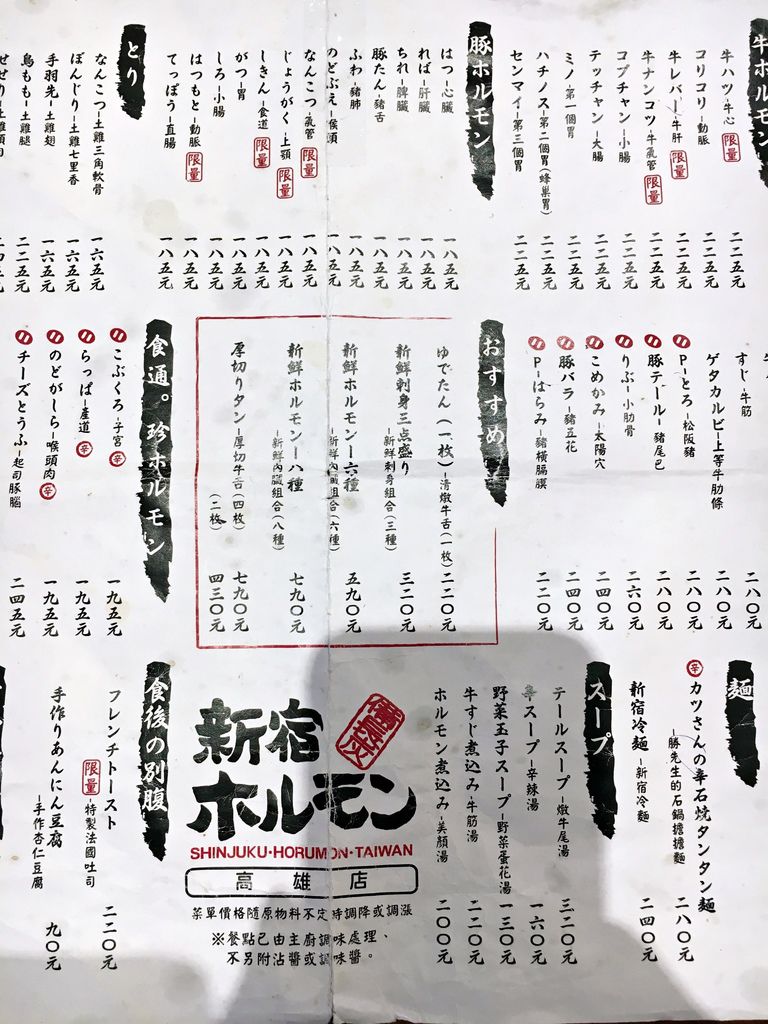 牛ホルモン
牛ハツ-牛心 限量 二二五元
コリコリ-動脈 二二五元
牛レバー-牛肝 限量 二二五元
牛ナンコツ-牛氣管 限量 二二五元
コプチャン-小腸 二二五元
テッチャン-大腸 二二五元
ミノ-第一個胃 二二五元
ハチノス-第二個胃(蜂巢胃) 二二五元
センマイ-第三個胃 二二五元
豚ホルモン
はつ-心臟 一八五元
ればー-肝臟 一八五元
ちれ-脾臟 一八五元
豚たん-豬舌 一八五元
ふわ-豬肺 一八五元
のどぶえ-喉頭 一八五元
なんこつ-氣管 限量 一八五元
じょうがく-上顎 限量 一八五元
しきん-食道 限量 一八五元
がつ-胃 一八五元
しろ-小腸 一八五元
はつもと-動脈 限量 一八五元
てっぽう-直腸 一八五元
とり
なんこつ-土雞三角軟骨 一六五元
ぼんじり-土雞七里香 一六五元
手羽先-土雞翅 一六五元
鳥もも-土雞腿 二二五元
すじ-牛筋 二八〇元
ゲタカルビ-上等牛肋條 二八〇元
P-とろ-松阪豬 二八〇元
豚テール-豬尾巴 二八〇元
りぶ-小肋骨 二六〇元
こめかみ-太陽穴 二四〇元
豚バラ-豬五花 二四〇元
P-はらみ-豬橫膈膜 二二〇元
おすすめ
ゆでたん(一枚)-清燉牛舌(一枚) 二二〇元
新鮮刺身三点盛り-新鮮刺身組合(三種) 三二〇元
新鮮ホルモン-六種-新鮮內臟組合(六種) 五九〇元
新鮮ホルモン-八種-新鮮內臟組合(八種) 七九〇元
厚切りタン-厚切牛舌(四枚) 七九〇元
(二枚) 四三〇元
食通。珍ホルモン
こぶくろ-子宮 辛 一九五元
らっぱ-產道 辛 一九五元
のどがしら-喉頭肉 辛 一九五元
チーズとうふ-起司豚腦 二四五元
麺
辛 カツさんの辛石焼タンタン麺
-勝先生的石鍋擔擔麵 二八〇元
新宿冷麺-新宿冷麵 二四〇元
スープ
テールスープ-燉牛尾湯 三二〇元
辛スープ-辛辣湯 一六〇元
野菜玉子スープ-野菜蛋花湯 一三〇元
牛すじ煮込み-牛筋湯 二二〇元
ホルモン煮込み-美顏湯 二〇〇元
備長炭
新宿
ホルモン
SHINJUKU・HORUMON・TAIWAN
高雄店
菜單價格隨原物料不定時調降或調漲
※餐點已由主廚調味處理、
不另附沾醬或調味醬。
食後の別腹
フレンチトースト
限量-特製法國吐司 二二〇元
手作りあんにん豆腐
-手作杏仁豆腐 九〇元